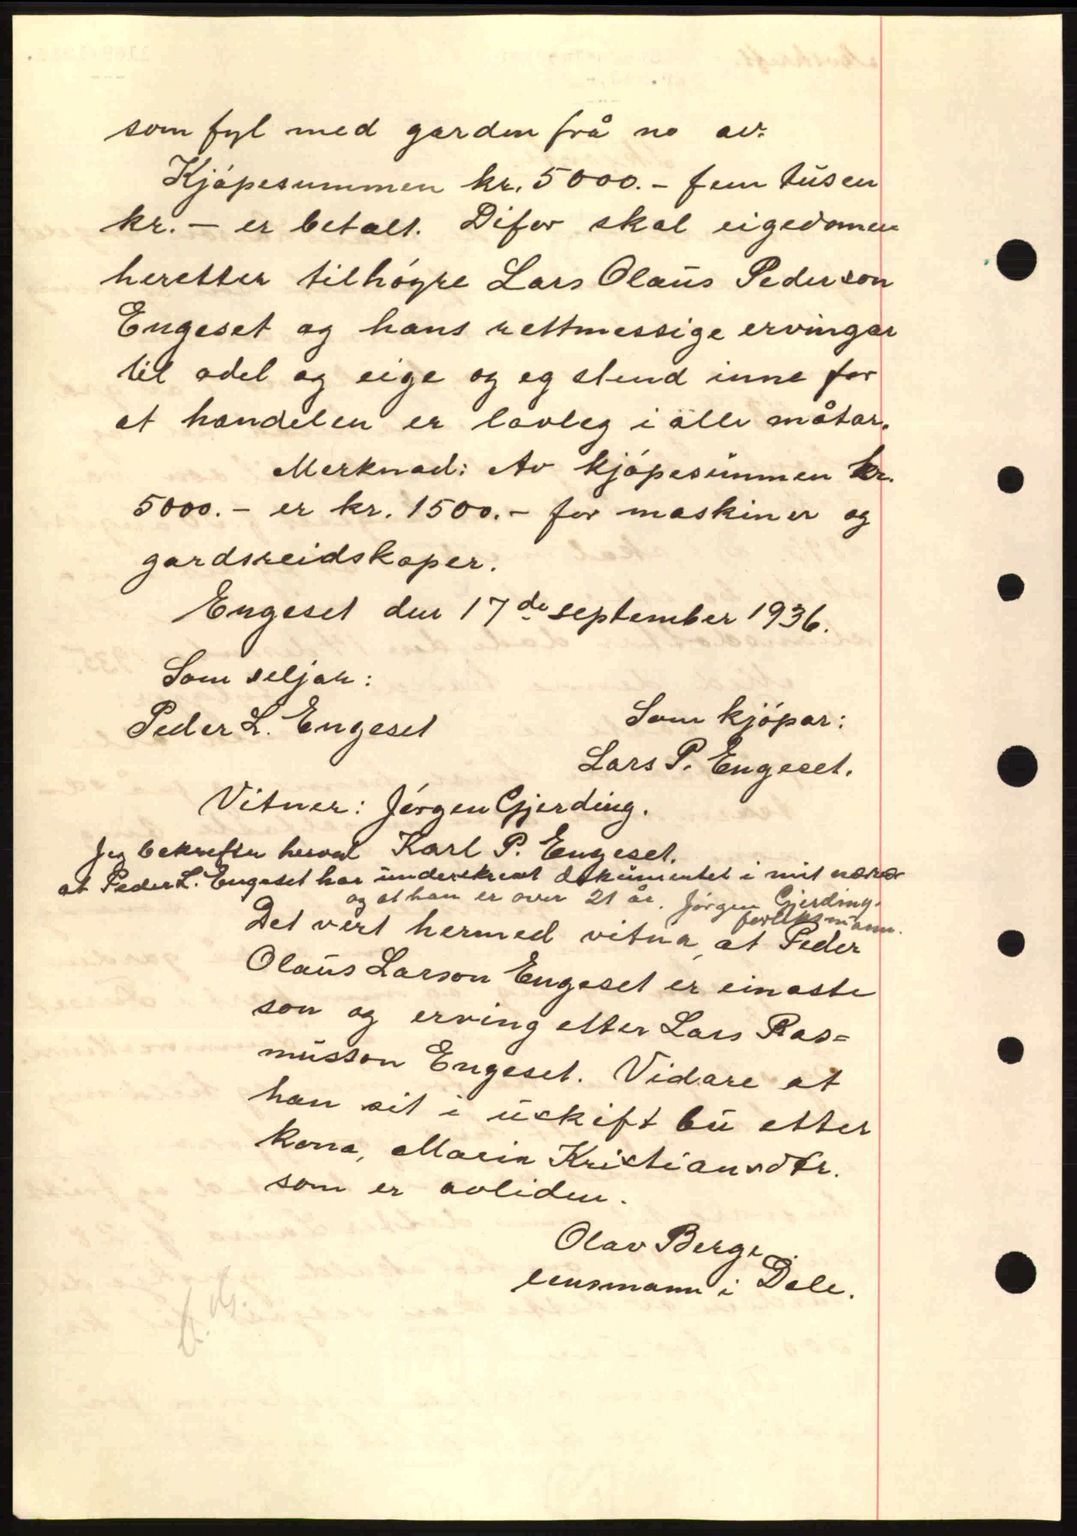 som fyl med garden frå no av.
Kjöpesummen kr. 5000.- fem tusen
kr. - er betalt. Difor skal eigedomen
heretter tilhöyre Lars Olaus Pederson
Engeset og hans rettmessige ervingar
til odel og eige og eg stend inne for
at handelen er lovleg i alle måtar.
Merknad: Av kjöpesummen kr.
5000.- er kr. 1500.- for maskiner og
gardsreidskaper.
Engeset den 17de september 1936.
Som seljar:
Peder L. Engeset
Som kjöpar:
Lars P. Engeset.
Vitner: Jörgen Gjerding.
Karl P. Engeset.
Jeg bekrefter herved
at Peder L. Engeset har underskrevet dokumentet i mit nærvær
og at han er over 21 år. Jörgen Gjerding.
forliksmann.
Det vert hermed vitna, at Peder
Olaus Larson Engeset er einaste
son og erving etter Lars Ras=
musson Engeset. Vidare at
han sit i uskift bu etter
kona, Marin Kristiansdtr.
som er avliden.
Olav Berge
lensmann i Dale.